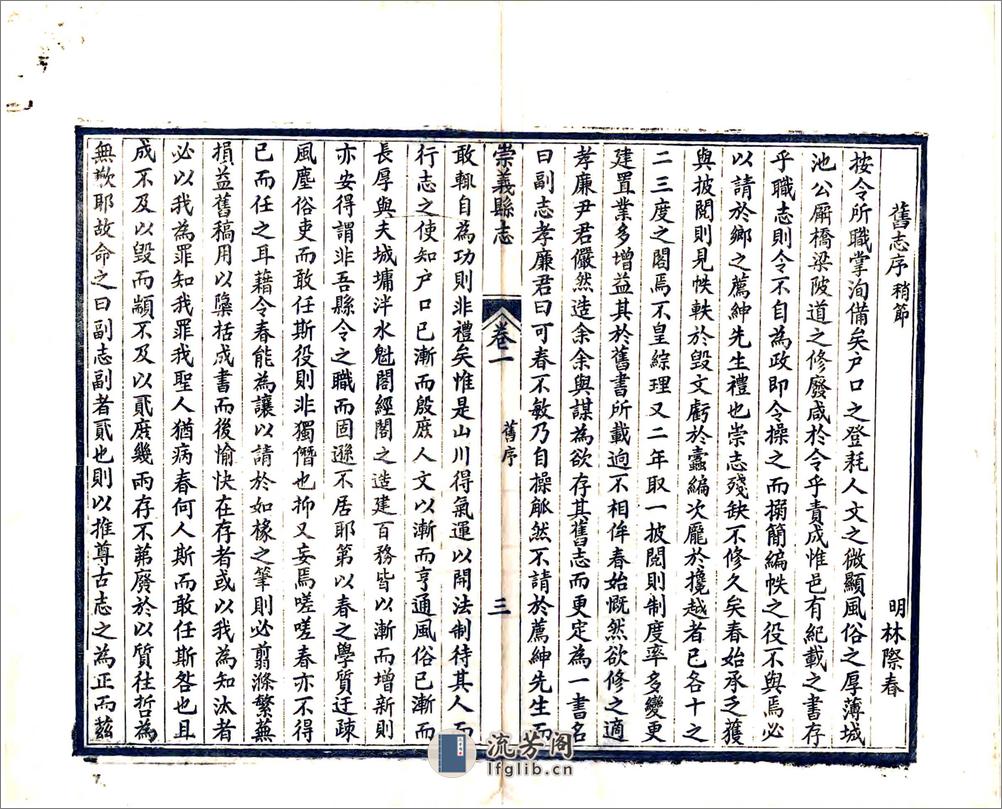 舊志序稍節
明林際春
按令所職掌洵備矣户口之登耗人文之微顯風俗之厚薄城
池公廨橋梁陂道之修廢咸於令乎責成惟邑有紀載之書存
乎職志則令不自為政即令操之而搦簡編帙之役不與焉必
以請於鄉之薦紳先生禮也崇志殘缺不修久矣春始承乏獲
與披閱則見帙軼於毀文虧於蠹編次龎於攙越者已各十之
二三度之閣焉不皇綜理又二年取一披閱則制度率多變更
建置業多增益其於舊書所載逈不相侔春始慨然欲修之適
孝廉尹君儼然造余余與謀為欲存其舊志而更定為一書名
曰副志孝廉君曰可春不敏乃自操觚然不請於薦紳先生而
崇義縣志
卷二
舊序
三
敢輒自為功則非禮矣惟是山川得氣運以開法制待其人而
行志之使知户口已漸而殷庶人文以漸而亨通風俗已漸而
長厚與夫城墉泮水魁閣經閣之造建百務皆以漸而增新則
亦安得謂非吾縣令之職而固遜不居耶第以春之學質迂疎
風塵俗吏而敢任斯役則非獨僭也抑又妄焉嗟嗟春亦不得
已而任之耳藉令春能為讓以請於如椽之筆則必翦滌繁蕪
損益舊稿用以檃括成書而後愉快在存者或以我為知汰者
必以我為罪知我罪我聖人猶病春何人斯而敢任斯咎也且
成不及以毀而顓不及以貳庶幾兩存不弟廢於以質往哲為
無欺耶故命之曰副志副者貳也則以推尊古志之為正而茲
流芳阁
lfglib.cn